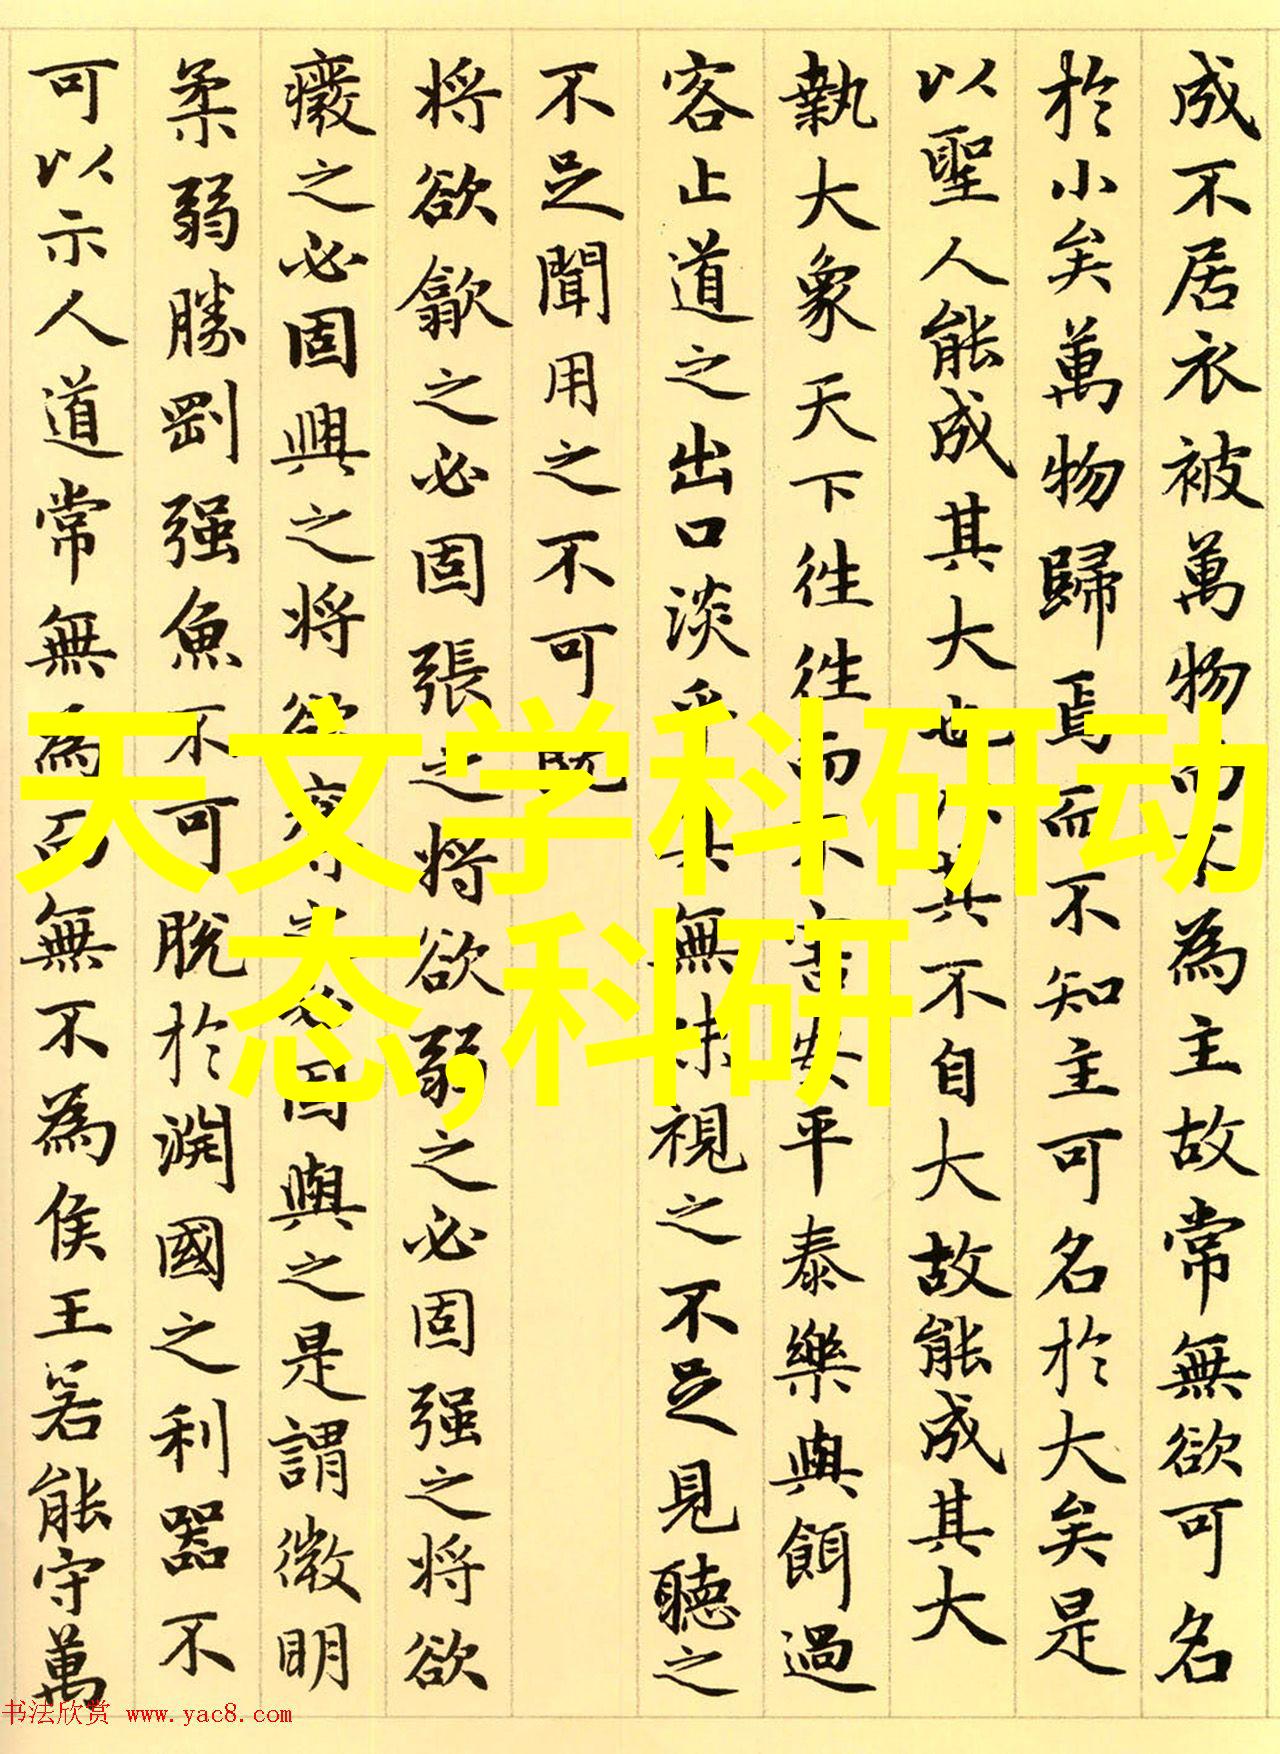 成不居衣被萬物而不為主故常無欲可名
於小矣萬物歸焉而不知主可名於大矣是
以聖人能成其大也以其不自大故能成其大
執大象天下往往而不害安平泰樂與餌過
客止道之出口淡乎其無味視之不足見聽之
不足聞用之不可既
將欲歙之必固張之將欲弱之必固强之將欲
癈之必固興之將欲奪之必固與之是謂微明
柔弱勝剛强魚不可脫於淵國之利器不
可以示人道常無為而無不為侯王若能守萬
天文学科研动
态,科研
书法欣赏 www.yac8.com